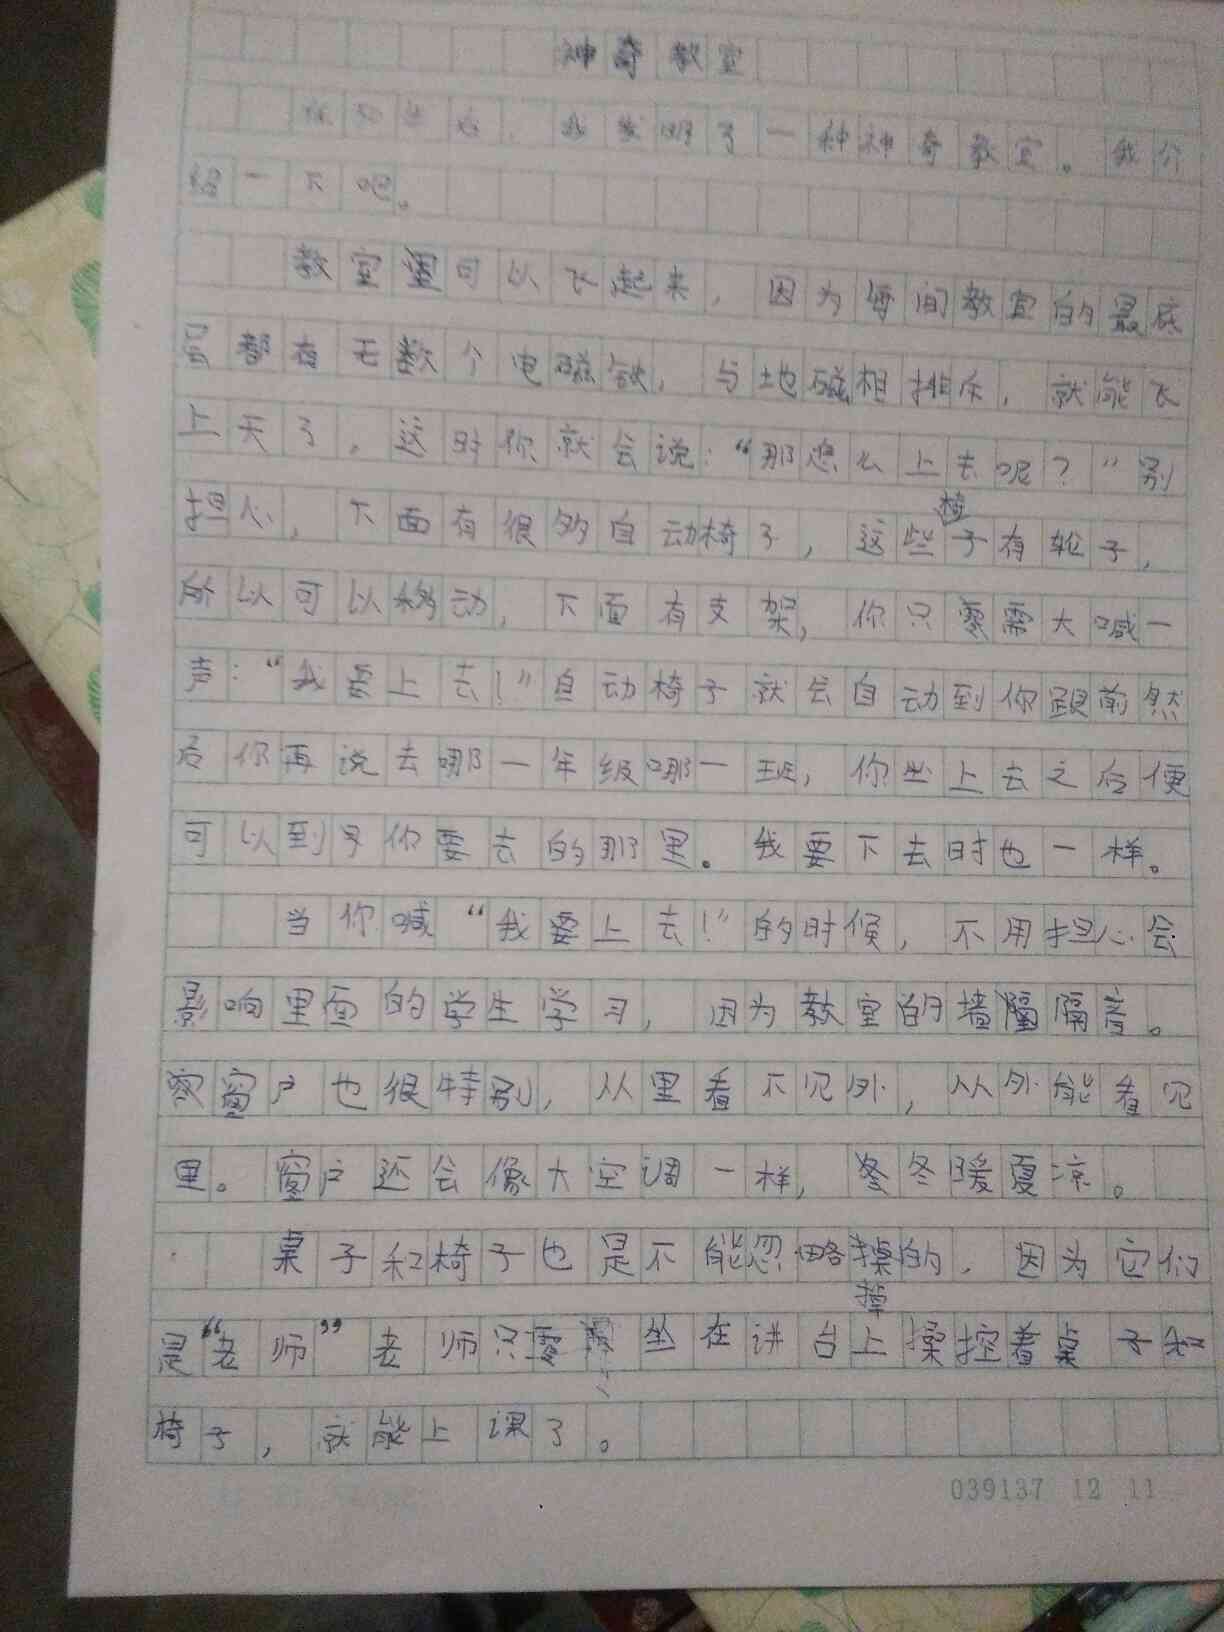 神奇教室
我发明了一种神奇教室。我介
绍一下吧。
教室里可以飞起来，因为每间教室的最底
层都有无数个电磁铁，与地磁相排斥，就能飞
上天了。这时你就会说：“那怎么上去呢？”别
担心，下面有很多自动椅子，这些椅子有轮子，
所以可以移动，下面有支架，你只需大喊一
声：“我要上去！”自动椅子就会自动到你跟前然
后你再说去哪一年级哪一班，你坐上去之后便
可以到了你要去的那里。我要下去时也一样。
当你喊“我要上去！”的时候，不用担心会
影响里面的学生学习，因为教室的墙隔音。
窗户也很特别，从里看不见外，从外能看见
里。窗户还会像大空调一样，冬暖夏凉。
桌子和椅子也是不能忽略掉的，因为它们
是“老师”老师只要坐在讲台上操控着桌子和
椅子，就能上课了。
039137 12 11